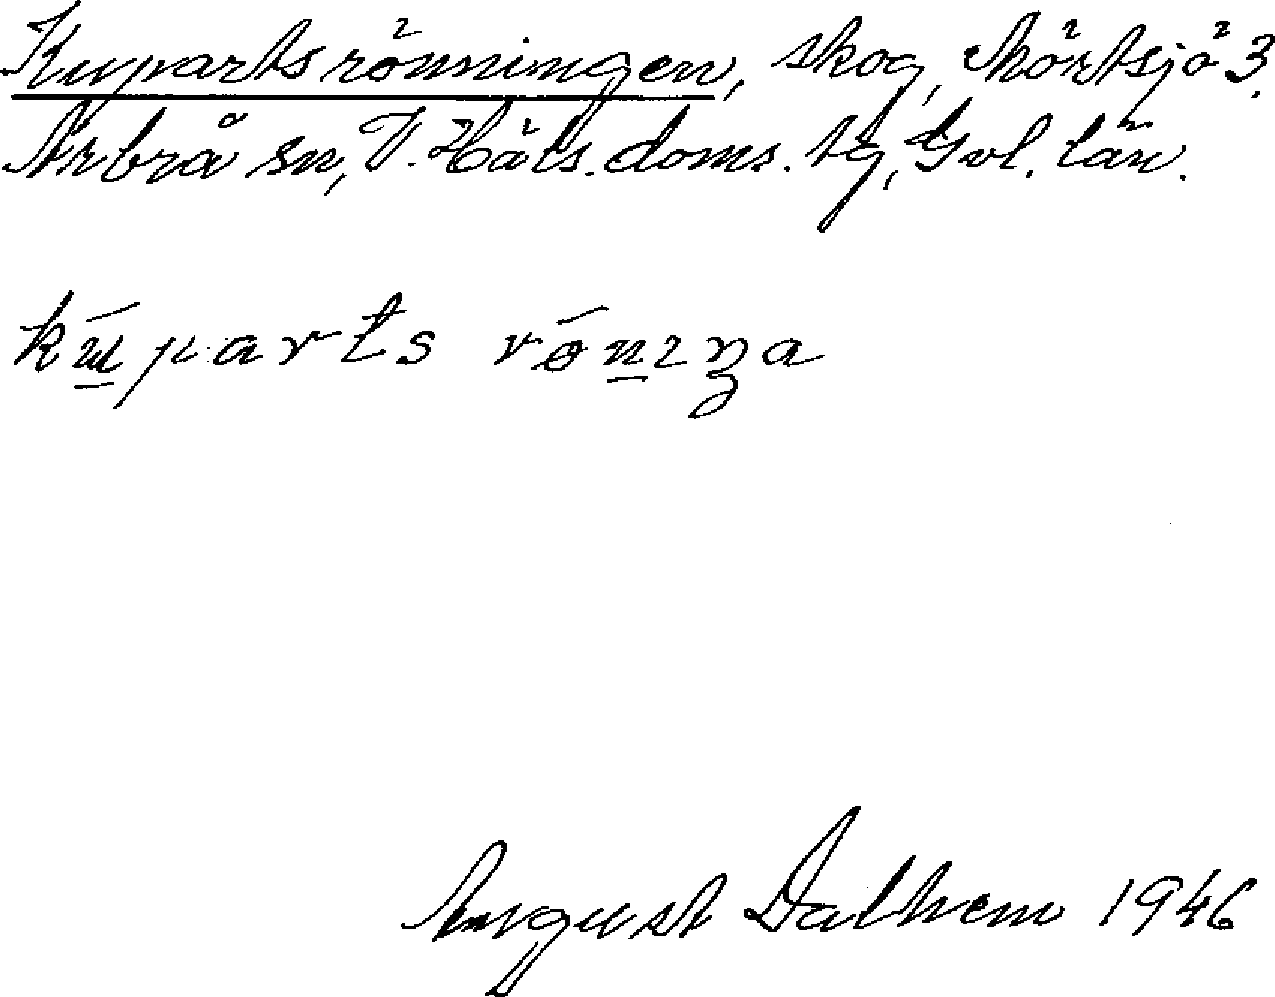 Kupartsrönningen, skog, Mörtsjö 3,
Arbrå sn, V. Häls. doms. tg, Gvl. län.
kúparts rónıŋa
August Dalhem 1946